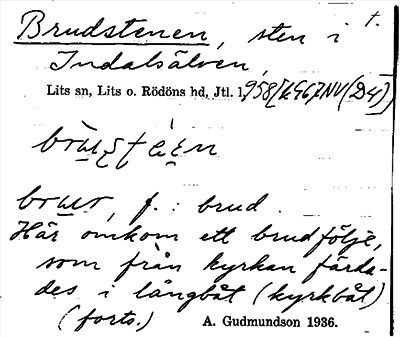 Brudstenen, sten i t.
Indalsälven,
Lits sn, Lits o. Rödöns hd, Jtl. l,
brud
Här omkom ett brudfölje,
som från kyrkan färda-
des i långbåt (kyrkbåt)
(forts.) A. Gudmundson 1936.